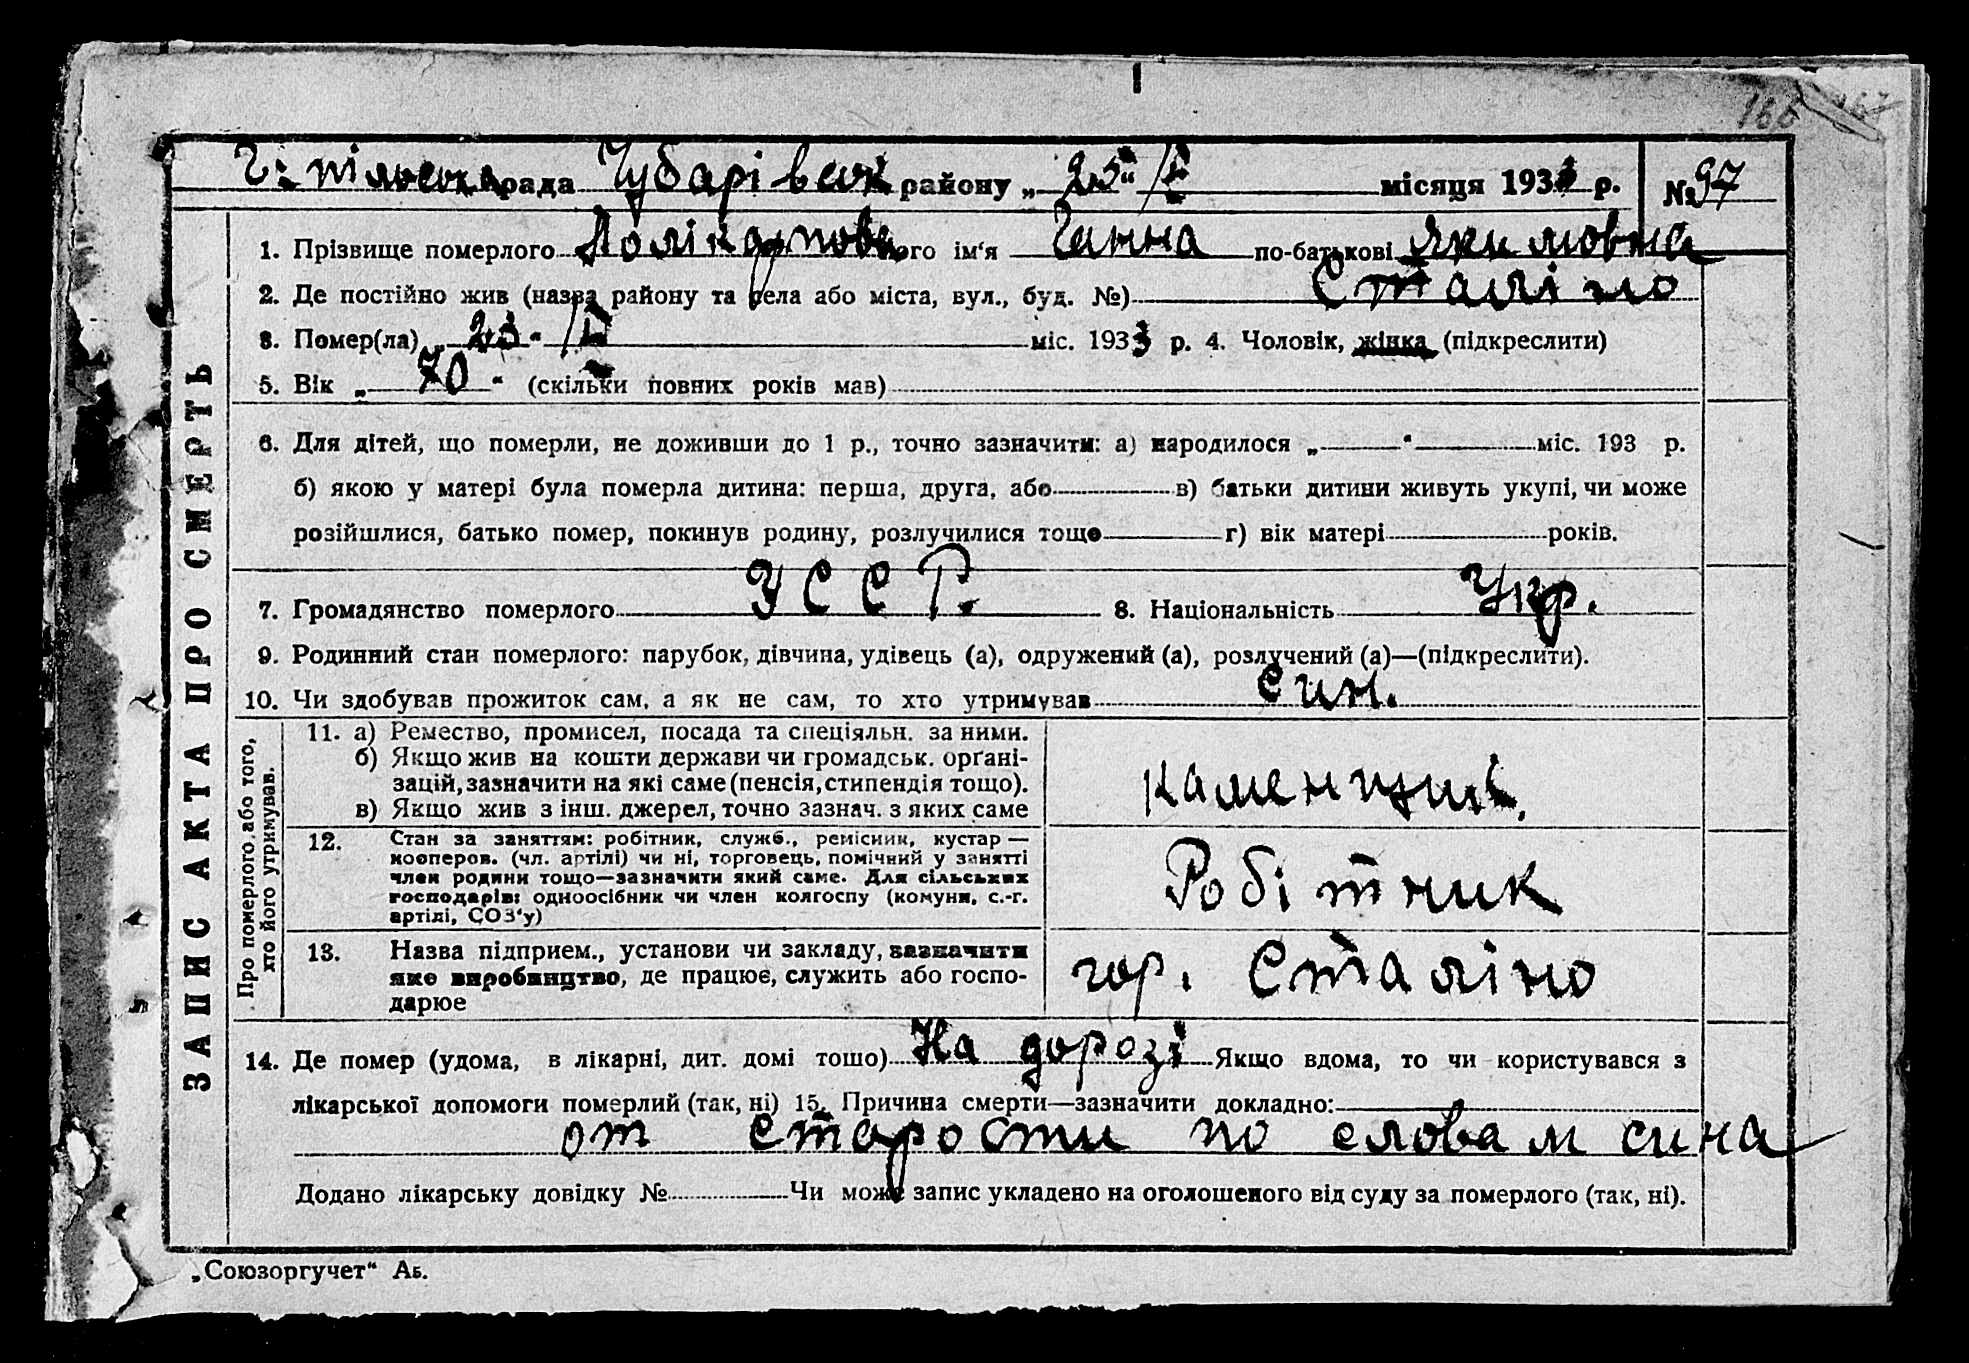 166 167
Гіпільська рада Чубарівськ району „ 25 “ / V місяця 1933 р. № 97
1. Прізвище померлого Полікарпова його ім'я Ганна по-батькові Якимовна
2. Де постійно жив (назва району та села або міста, вул., буд. №) Сталіно
3. Помер(ла) „ 23 “ / V міс. 1933 р. 4. Чоловік, жінка (підкреслити)
5. Вік „ 70 “ (скільки повних років мав)
6. Для дітей, що померли, не доживши до 1 р., точно зазначити: а) народилося „ “ міс. 193 р.
б) якою у матері була померла дитина: перша, друга, або в) батьки дитини живуть укупі, чи може
розійшлися, батько помер, покинув родину, розлучилися тощо г) вік матері років.
7. Громадянство померлого УССР. 8. Національність Укр.
9. Родинний стан померлого: парубок, дівчина, удівець (а), одружений (а), розлучений (а)—(підкреслити).
10. Чи здобував прожиток сам, а як не сам, то хто утримував син.
ЗАПИС АКТА ПРО СМЕРТЬ
Про померлого, або того,
хто його утримував.
11. а) Ремество, промисел, посада та спеціяльн. за ними.
б) Якщо жив на кошти держави чи громадськ. орґані-
зацій, зазначити на які саме (пенсія, стипендія тощо).
в) Якщо жив з інш. джерел, точно зазнач. з яких саме
каменщик,
12. Стан за заняттям: робітник, служб., ремісник, кустар —
кооперов. (чл. артілі) чи ні, торговець, помічний у занятті
член родини тощо—зазначити який саме. Для сільських
господарів: одноосібник чи член колгоспу (комуни, с.-г.
артілі, СОЗ'у)
Робітник
13. Назва підприєм., установи чи закладу, зазначити
яке виробництво, де працює, служить або госпо-
дарює
гор. Сталіно
14. Де помер (удома, в лікарні, дит. домі тощо) На дорозі Якщо вдома, то чи користувався з
лікарської допомоги померлий (так, ні) 15. Причина смерти—зазначити докладно:
от старости по словам сина
Додано лікарську довідку № Чи може запис укладено на оголошеного від суду за померлого (так, ні).
„Союзоргучет“ Аб.